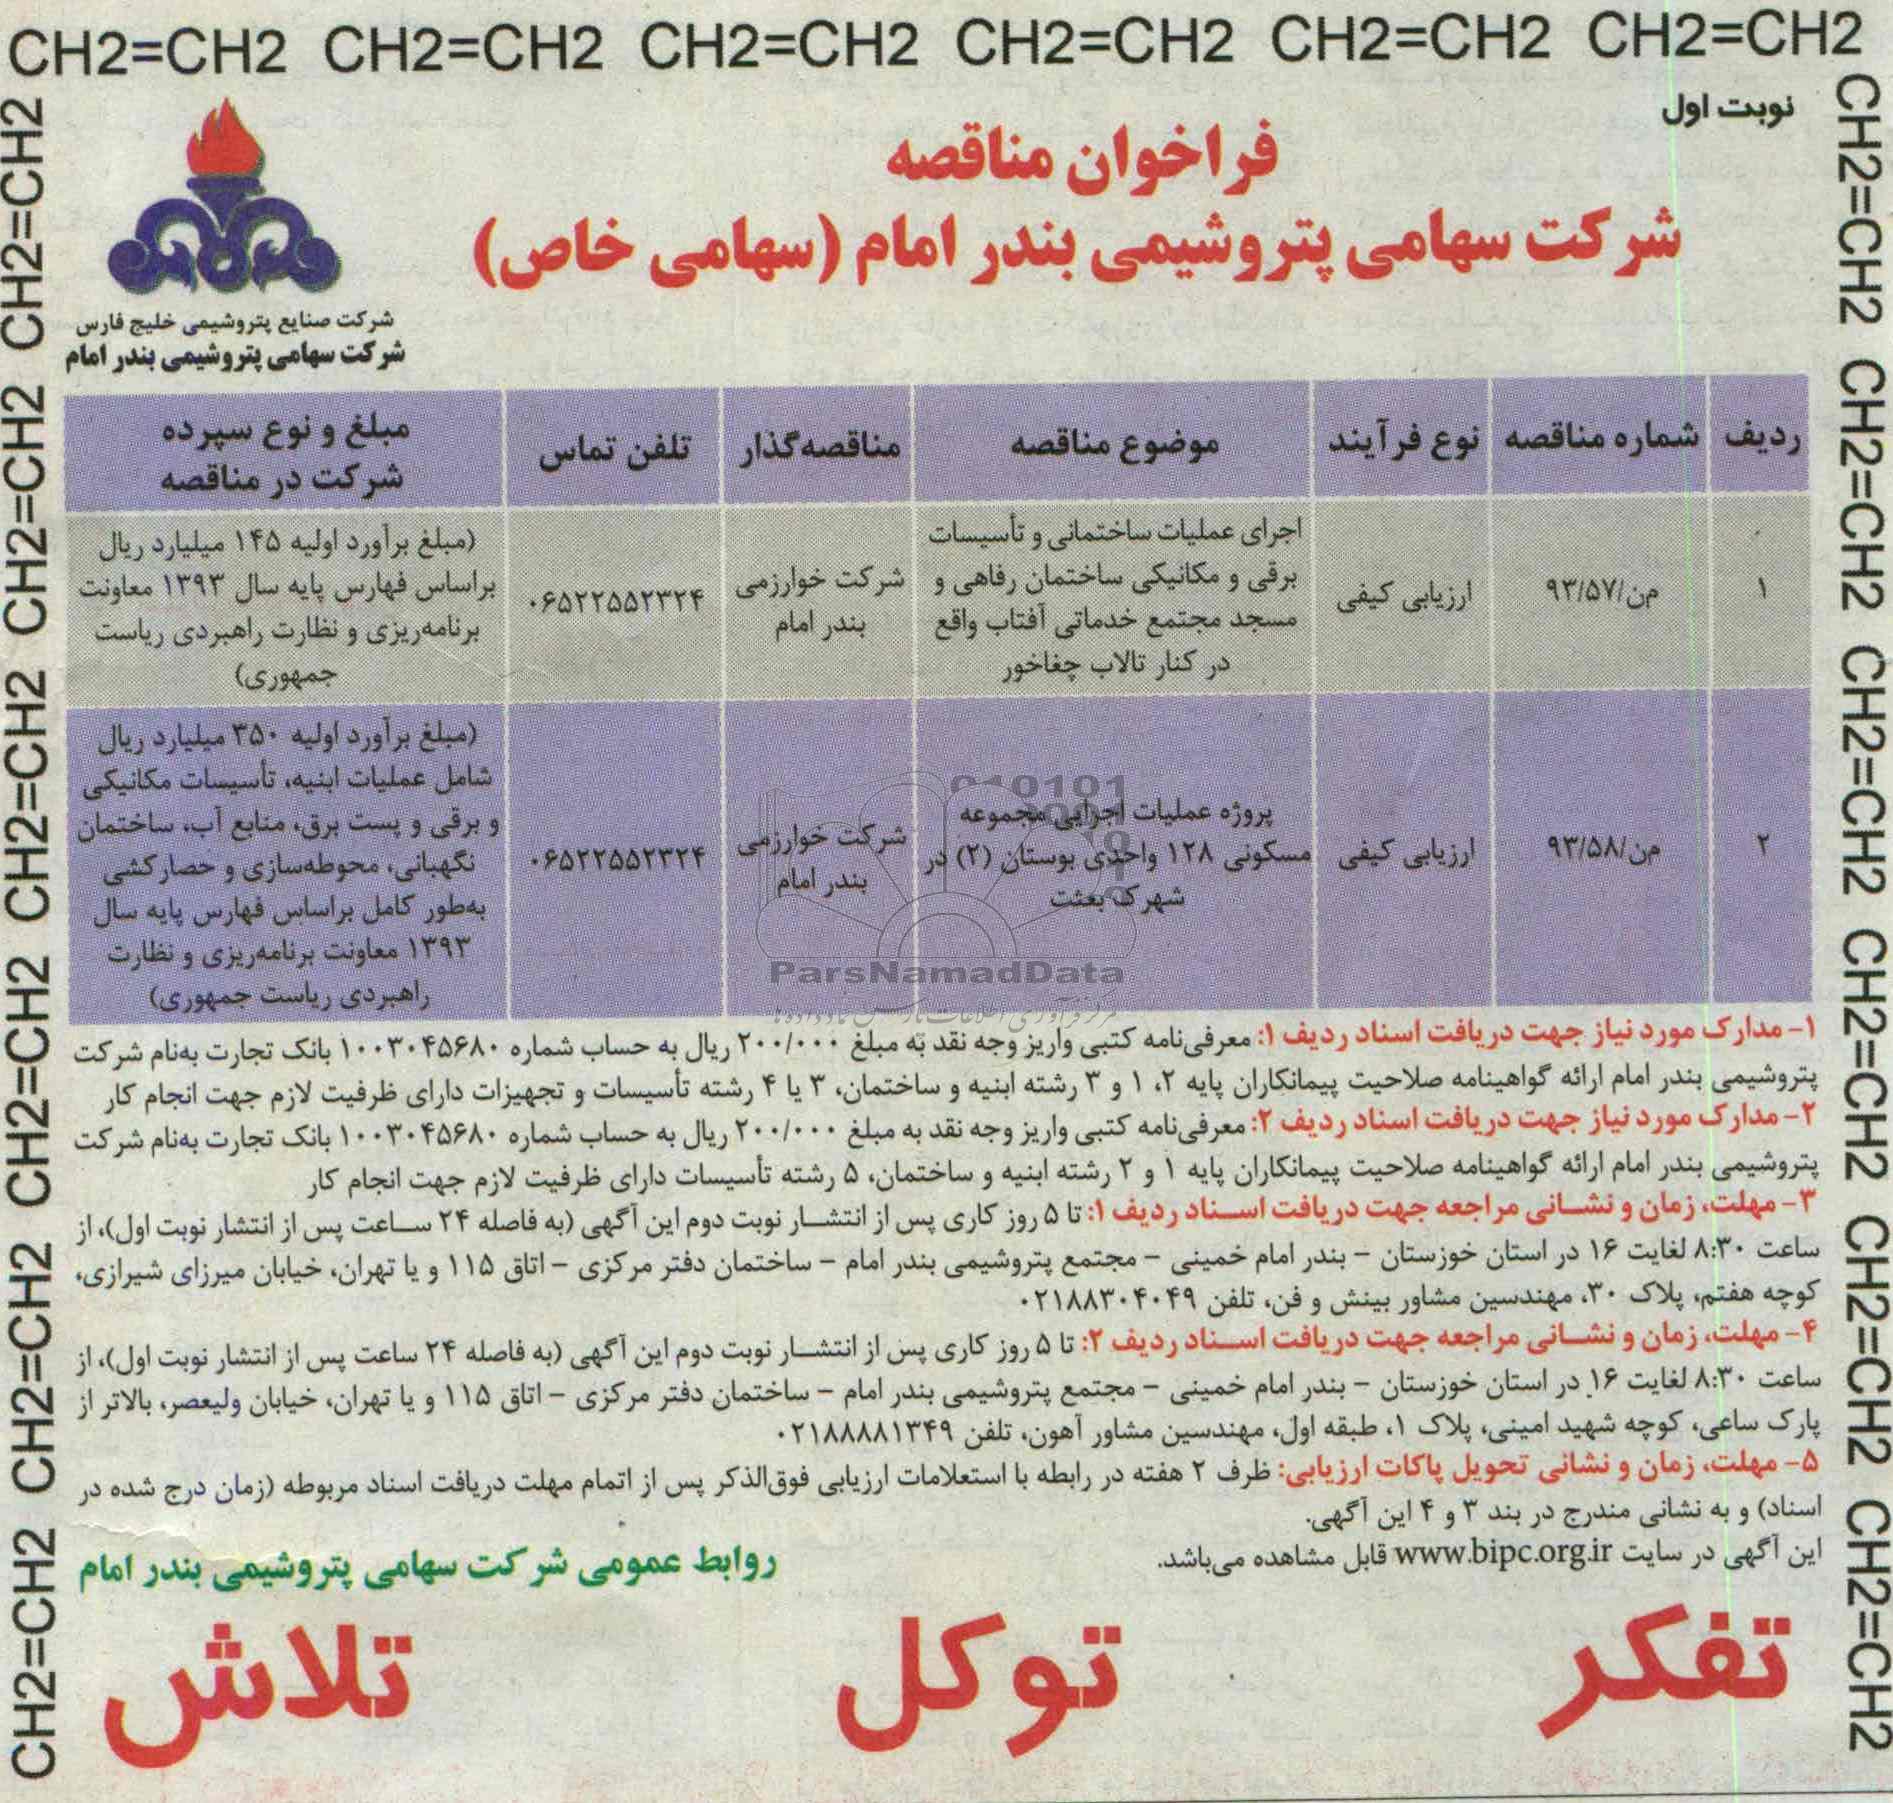 CH2=CH2 CH2=CH2 CH2=CH2 CH2=CH2 CH2=CH2 CH2=CH2
نوبت اول
فراخوان مناقصه
شرکت سهامی پتروشیمی بندر امام (سهامی خاص)
شرکت صنایع پتروشیمی خلیج فارس
شرکت سهامی پتروشیمی بندر امام
ردیف شماره مناقصه نوع فرآیند موضوع مناقصه مناقصه‌گذار تلفن تماس مبلغ و نوع سپرده
شرکت در مناقصه
۱
من/۹۳/۵۷
ارزیابی کیفی
اجرای عملیات ساختمانی و تأسیسات
برقی و مکانیکی ساختمان رفاهی و
مسجد مجتمع خدماتی آفتاب واقع
در کنار تالاب چغاخور
شرکت خوارزمی
بندر امام
۰۶۵۲۲۵۵۲۳۲۴
(مبلغ برآورد اولیه ۱۴۵ میلیارد ریال
براساس فهارس پایه سال ۱۳۹۳ معاونت
برنامه‌ریزی و نظارت راهبردی ریاست
جمهوری)
۲
من/۹۳/۵۸
ارزیابی کیفی
پروژه عملیات اجرایی مجموعه
مسکونی ۱۲۸ واحدی بوستان (۲) در
شهرک بعثت
شرکت خوارزمی
بندر امام
۰۶۵۲۲۵۵۲۳۲۴
(مبلغ برآورد اولیه ۳۵۰ میلیارد ریال
شامل عملیات ابنیه، تأسیسات مکانیکی
و برقی و پست برق، منابع آب، ساختمان
نگهبانی، محوطه‌سازی و حصارکشی
به‌طور کامل براساس فهارس پایه سال
۱۳۹۳ معاونت برنامه‌ریزی و نظارت
راهبردی ریاست جمهوری)
ParsNamadData
۱- مدارک مورد نیاز جهت دریافت اسناد ردیف ۱: معرفی‌نامه کتبی واریز وجه نقد به مبلغ ۲۰۰/۰۰۰ ریال به حساب شماره ۱۰۰۳۰۴۵۶۸۰ بانک تجارت به‌نام شرکت
پتروشیمی بندر امام ارائه گواهینامه صلاحیت پیمانکاران پایه ۲، ۱ و ۳ رشته ابنیه و ساختمان، ۳ یا ۴ رشته تأسیسات و تجهیزات دارای ظرفیت لازم جهت انجام کار
۲- مدارک مورد نیاز جهت دریافت اسناد ردیف ۲: معرفی‌نامه کتبی واریز وجه نقد به مبلغ ۲۰۰/۰۰۰ ریال به حساب شماره ۱۰۰۳۰۴۵۶۸۰ بانک تجارت به‌نام شرکت
پتروشیمی بندر امام ارائه گواهینامه صلاحیت پیمانکاران پایه ۱ و ۲ رشته ابنیه و ساختمان، ۵ رشته تأسیسات دارای ظرفیت لازم جهت انجام کار
۳- مهلت، زمان و نشانی مراجعه جهت دریافت اسناد ردیف ۱: تا ۵ روز کاری پس از انتشار نوبت دوم این آگهی (به فاصله ۲۴ ساعت پس از انتشار نوبت اول)، از
ساعت ۸:۳۰ لغایت ۱۶ در استان خوزستان - بندر امام خمینی - مجتمع پتروشیمی بندر امام - ساختمان دفتر مرکزی - اتاق ۱۱۵ و یا تهران، خیابان میرزای شیرازی،
کوچه هفتم، پلاک ۳۰، مهندسین مشاور بینش و فن، تلفن ۰۲۱۸۸۳۰۴۰۴۹
۴- مهلت، زمان و نشانی مراجعه جهت دریافت اسناد ردیف ۲: تا ۵ روز کاری پس از انتشار نوبت دوم این آگهی (به فاصله ۲۴ ساعت پس از انتشار نوبت اول)، از
ساعت ۸:۳۰ لغایت ۱۶ در استان خوزستان - بندر امام خمینی - مجتمع پتروشیمی بندر امام - ساختمان دفتر مرکزی - اتاق ۱۱۵ و یا تهران، خیابان ولیعصر، بالاتر از
پارک ساعی، کوچه شهید امینی، پلاک ۱، طبقه اول، مهندسین مشاور آهون، تلفن ۰۲۱۸۸۸۸۱۳۴۹
۵- مهلت، زمان و نشانی تحویل پاکات ارزیابی: ظرف ۲ هفته در رابطه با استعلامات ارزیابی فوق‌الذکر پس از اتمام مهلت دریافت اسناد مربوطه (زمان درج شده در
اسناد) و به نشانی مندرج در بند ۳ و ۴ این آگهی.
این آگهی در سایت www.bipc.org.ir قابل مشاهده می‌باشد.
روابط عمومی شرکت سهامی پتروشیمی بندر امام
تفکر توکل تلاش
CH2=CH2 CH2=CH2 CH2=CH2 CH2=CH2 CH2=CH2 CH2=CH2
CH2=CH2 CH2=CH2 CH2=CH2 CH2=CH2 CH2=CH2 CH2=CH2